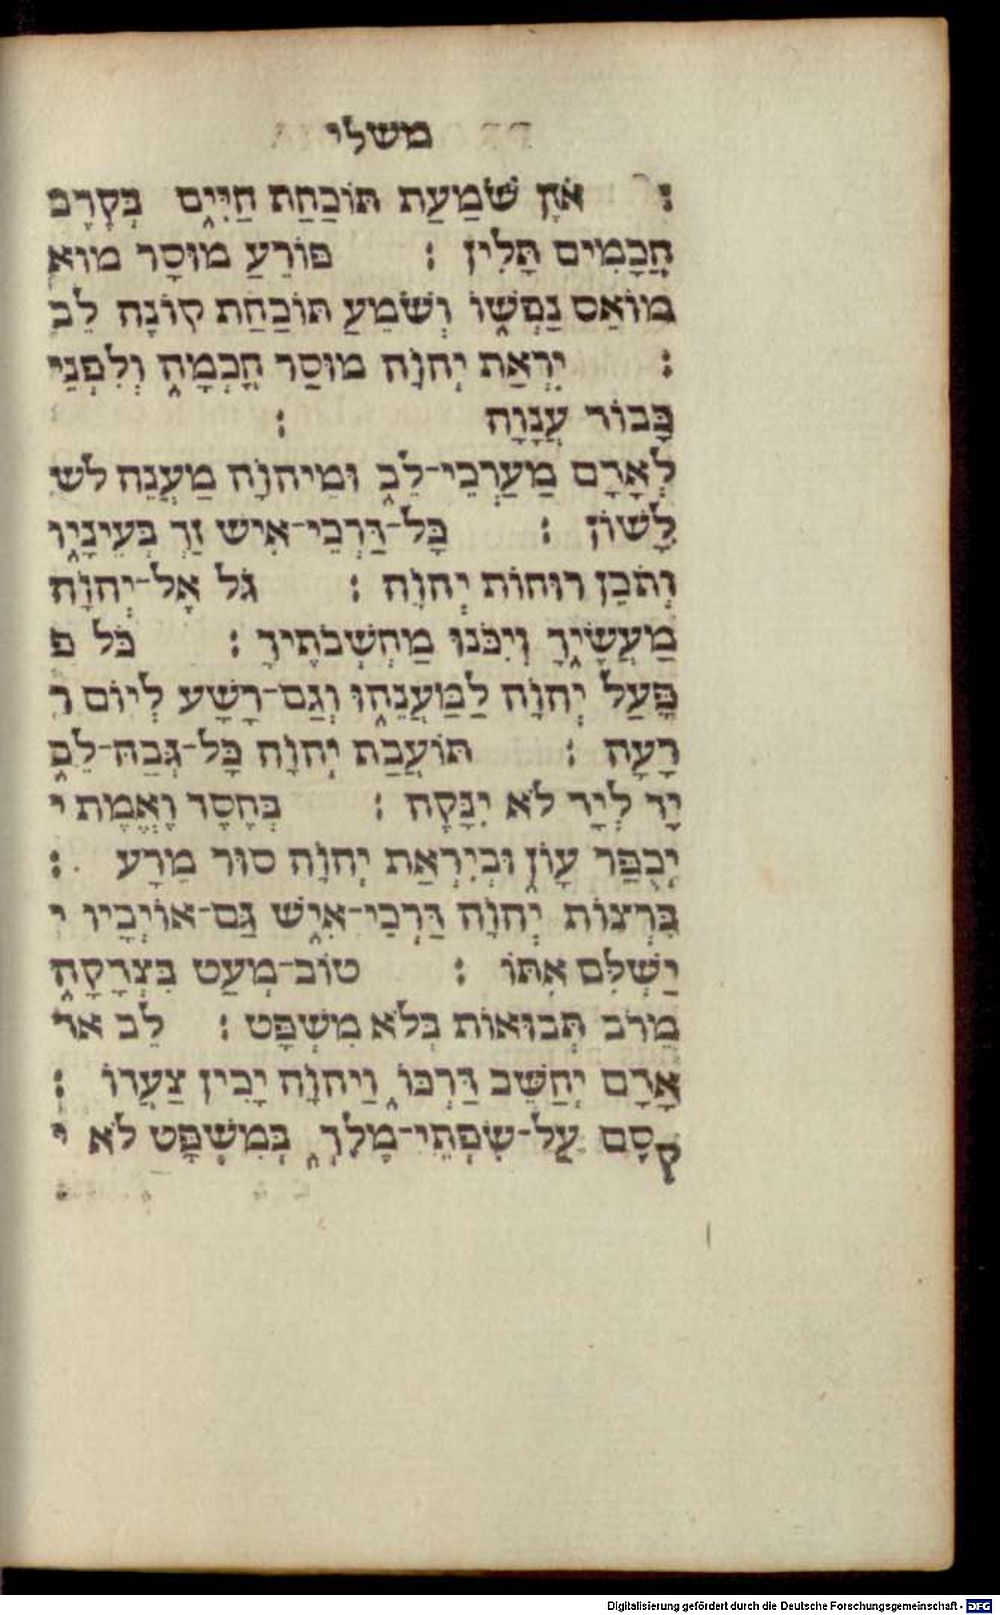 משלי
: אֹזֶן שֹׁמַעַת תּוֹכַחַת חַיִּים בְּקֶרֶב
חֲכָמִים תָּלִין : פּוֹרֵעַ מוּסָר מוא
מוֹאֵס נַפְשׁוֹ וְשֹׁמֵעַ תּוֹכַחַת קוֹנֶה לֵב
: יִרְאַת יְהוָֹה מוּסַר חָכְמָה וְלִפְנֵי
כָּבוֹד עֲנָוָה :
לְאָדָם מַעַרְכֵי־לֵב וּמֵיהוָֹה מַעֲנֵה לש
לָשׁוֹן : כָּל־דַּרְכֵי־אִישׁ זַךְ בְּעֵינָיו
וְתֹכֵן רוּחוֹת יְהוָֹה : גֹּל אֶל־יְהוָֹה
מַעֲשֶׂיךָ וְיִכֹּנוּ מַחְשְׁבֹתֶיךָ : כֹּל פ
פָּעַל יְהוָֹה לַמַּעֲנֵהוּ וְגַם־רָשָׁע לְיוֹם ר
רָעָה : תּוֹעֲבַת יְהוָֹה כָּל־גְּבַהּ־לֵב
יָד לְיָד לֹא יִנָּקֶה : בְּחֶסֶד וֶאֱמֶת י
יְכֻפַּר עָוֹן וּבְיִרְאַת יְהוָֹה סוּר מֵרָע :
בִּרְצוֹת יְהוָֹה דַּרְכֵי־אִישׁ גַּם־אוֹיְבָיו י
יַשְׁלִם אִתּוֹ : טוֹב־מְעַט בִּצְדָקָה
מֵרֹב תְּבוּאוֹת בְּלֹא מִשְׁפָּט : לֵב אד
אָדָם יְחַשֵּׁב דַּרְכּוֹ וַיהוָֹה יָכִין צַעֲדוֹ :
קֶסֶם עַל־שִׂפְתֵי־מֶלֶךְ בְּמִשְׁפָּט לֹא י
Digitalisierung gefördert durch die Deutsche Forschungsgemeinschaft - DFG